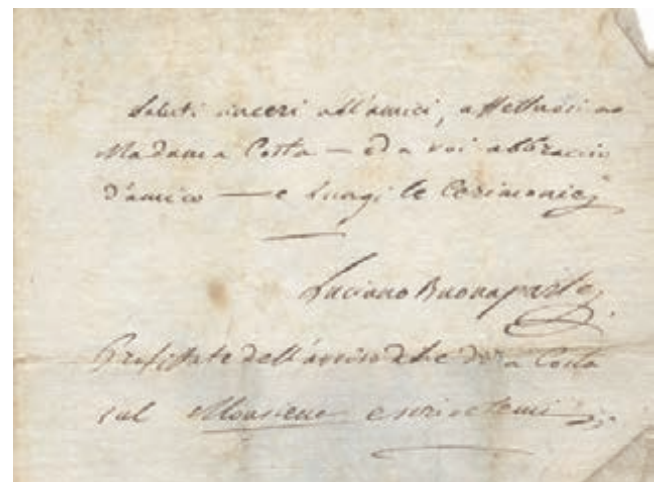 Saluti sinceri all'amici, affettuosi a
Madama Costa — ed a voi abbraccio
d'amico — e lungi le Cerimonie
Luciano Buonaparte
Profittate dell'avviso che dara Costa
sul Monsieur e scrivetemi